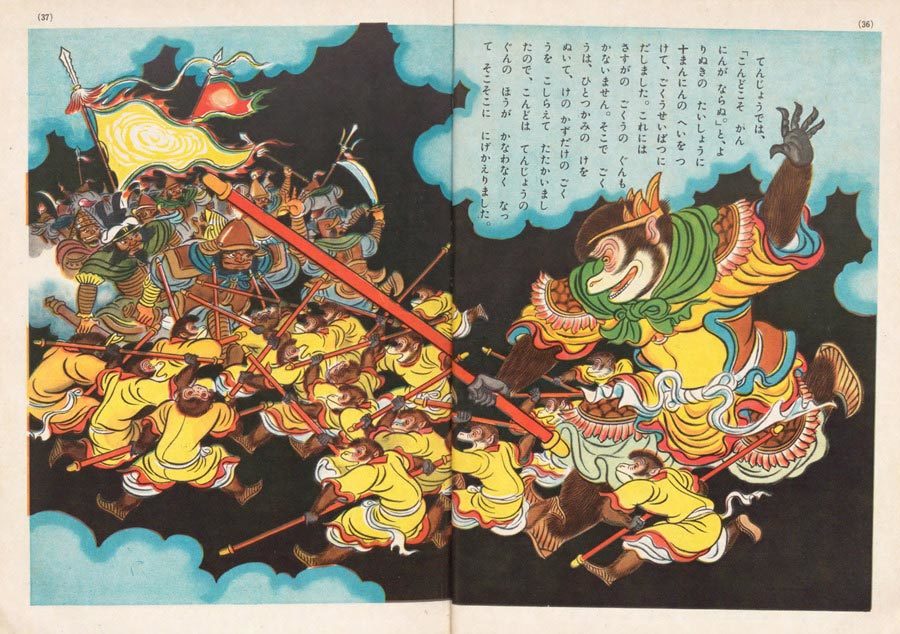 (36)
てんじょうでは、
「こんどこそ かん
にんが ならぬ。」と、よ
りぬきの たいしょうに
十まんにんの へいを つ
けて、ごくうせいばつに
だしました。これには
さすがの ごくうの ぐんも
かないません。そこで ごく
うは、ひとつかみの けを
ぬいて、けの かずだけの ごく
うを こしらえて たたかいまし
たので、こんどは てんじょうの
ぐんの ほうが かなわなく なっ
て そこそこに にげかえりました。
(37)